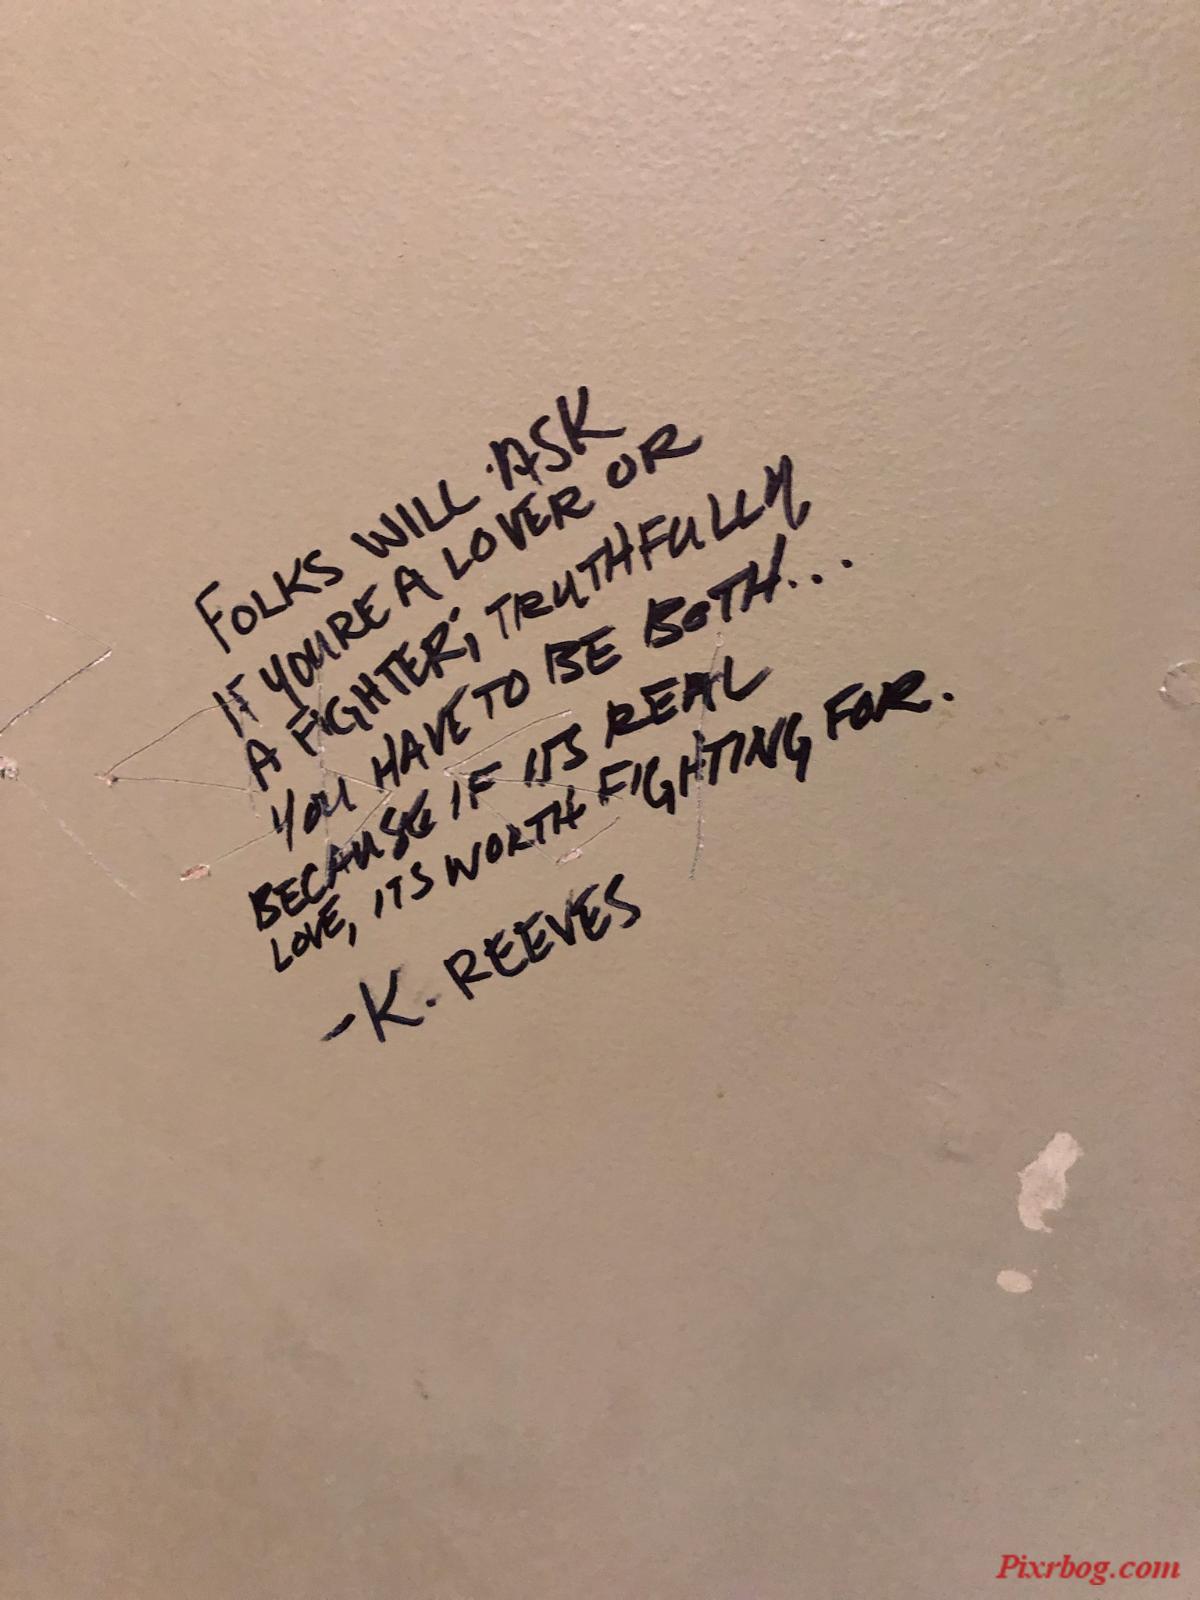 FOLKS WILL ASK
IF YOURE A LOVER OR
A FIGHTER; TRUTHFULLY
YOU HAVE TO BE BOTH...
BECAUSE IF ITS REAL
LOVE, ITS WORTH FIGHTING FOR.
-K. REEVES
Pixrbog.com